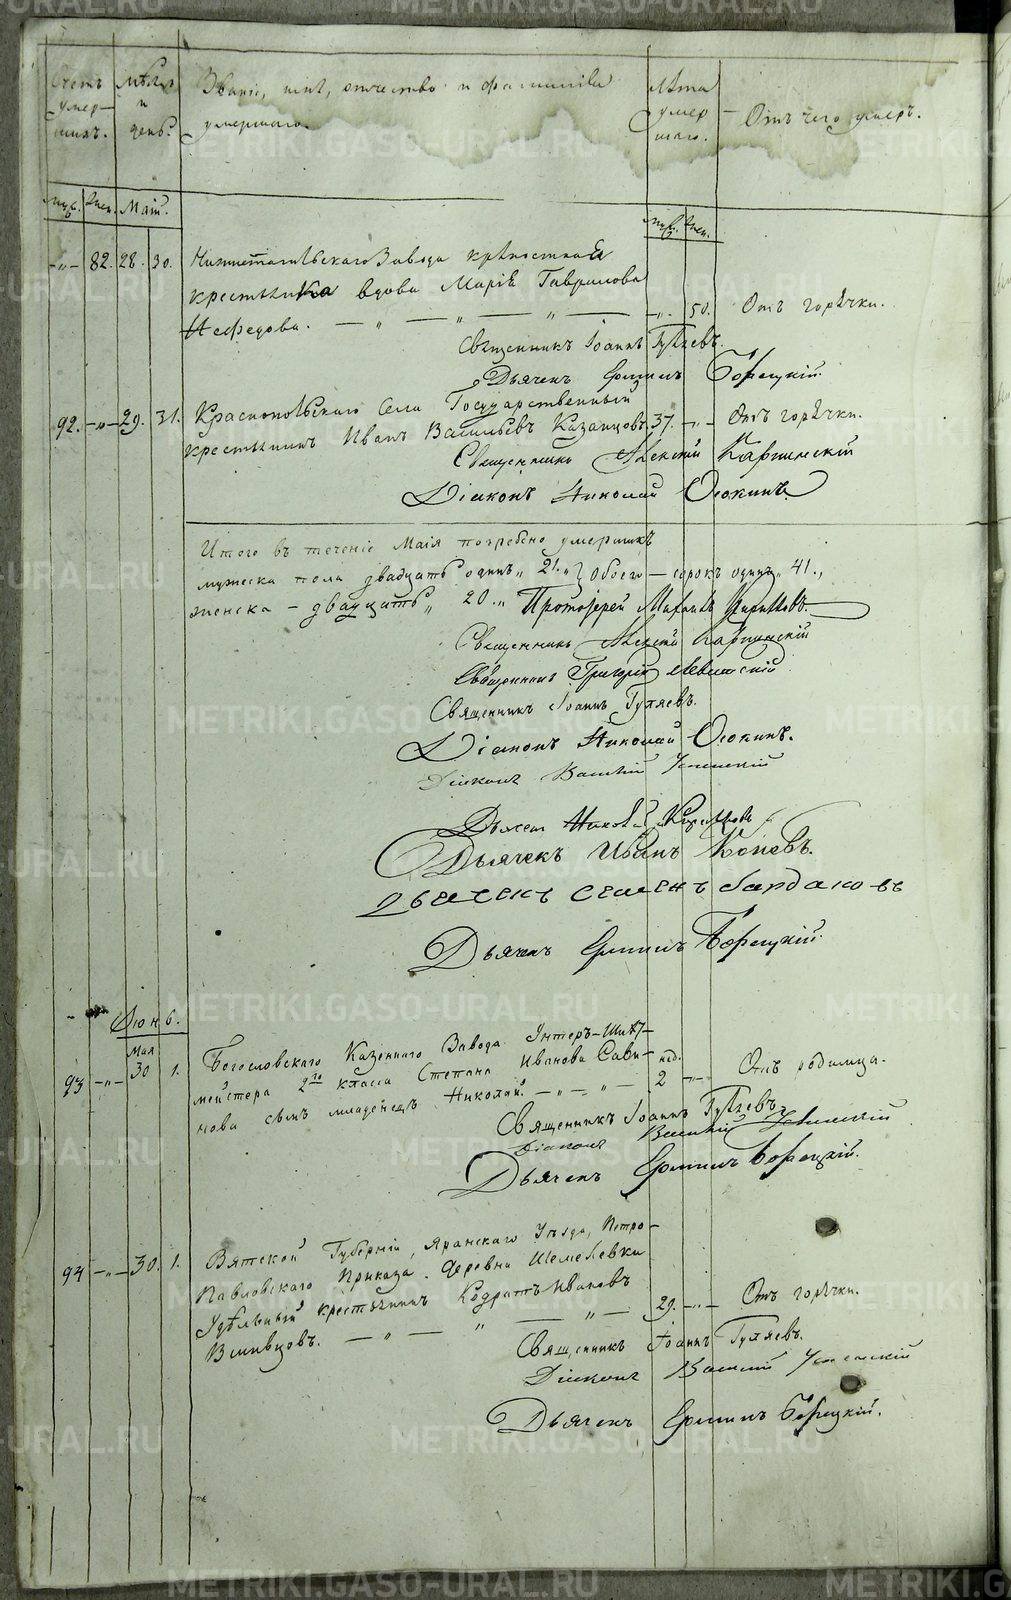 Счетъ умершихъ.
Мѣсяцъ и день.
Званіе, имя, отчество и фамилія умершаго.
Лѣта умершаго.
Отъ чего умеръ.
муж. жен. Май.
муж. жен.
82. 28. 30. Нижнетагильскаго Завода крѣпостная
крестьянка вдова Марія Гаврилова
Нефедова. 50. Отъ горячки.
Священникъ Іоаннъ Гуляевъ.
Дьячекъ Борецкій.
92. 29. 31. Краснопольскаго Села Государственный
крестьянинъ Иванъ Васильевъ Казанцовъ. 37. Отъ горячки.
Священникъ Алексій Карпинскій
Діаконъ Николай Осокинъ.
Итого въ теченіе Маія погребено умершихъ
мужеска пола двадцать одинъ 21. Обоего сорокъ одинъ 41.
женска двадцать 20. Протоіерей
Священникъ Алексій Карпинскій
Священникъ Григорій Левитскій
Священникъ Іоаннъ Гуляевъ.
Діаконъ Николай Осокинъ.
Діаконъ Василій Успенскій
Дьячекъ Николай
Дьячекъ Иванъ Копевъ.
Дьячекъ Семенъ Бардаковъ
Дьячекъ Борецкій.
Іюнь.
Мая
93 30 1. Богословскаго Казеннаго Завода Унтеръ-Шихт-
мейстера 2го класса Степана Иванова Сави- нед.
нова сынъ младенецъ Николай. 2 Отъ родимца.
Священникъ Іоаннъ Гуляевъ.
Діаконъ Василій Успенскій
Дьячекъ Борецкій.
94 30. 1. Вятской Губерніи, Яранскаго Уѣзда, Петро-
Павловскаго Приказа Деревни
Удѣльный крестьянинъ Кодратъ Ивановъ
29. Отъ горячки.
Священникъ Іоаннъ Гуляевъ.
Діаконъ Василій Успенскій
Дьячекъ Борецкій.
METRIKI.GASO-URAL.RU